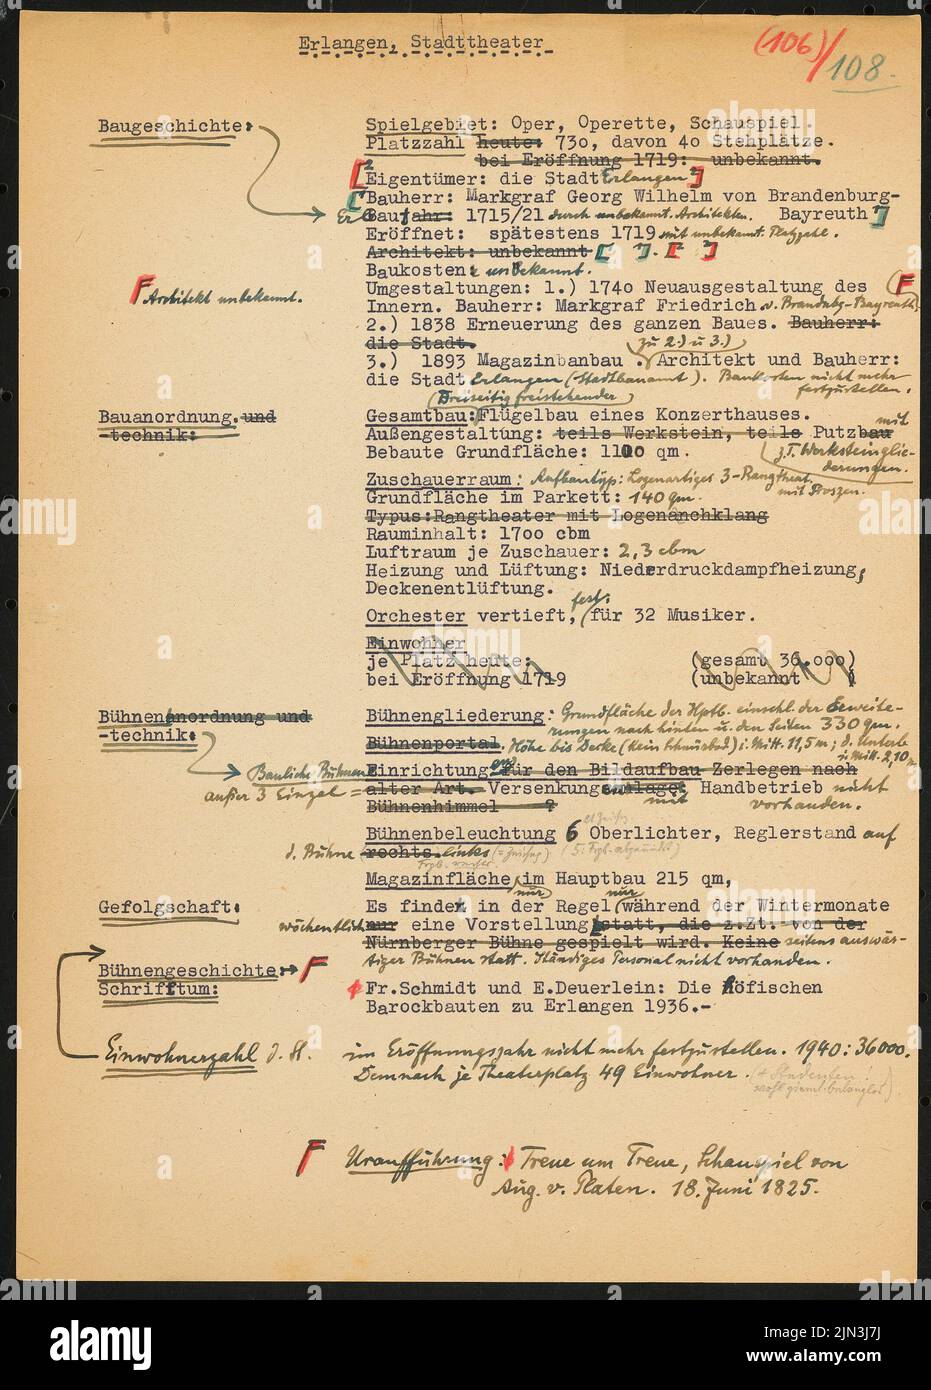 Erlangen, Stadttheater
(106)/108.
Baugeschichte:
Spielgebiet: Oper, Operette, Schauspiel.
Platzzahl heute: 730, davon 40 Stehplätze.
bei Eröffnung 1719: unbekannt.
Eigentümer: die Stadt Erlangen
Bauherr: Markgraf Georg Wilhelm von Brandenburg-
Baujahr: 1715/21 durch unbekannt. Architekten. Bayreuth
Eröffnet: spätestens 1719 mit unbekannt. Platzzahl.
Architekt: unbekannt
Baukosten: unbekannt.
Umgestaltungen: 1.) 1740 Neuausgestaltung des
F Architekt unbekannt.
Innern. Bauherr: Markgraf Friedrich v. Brandenbg-Bayreuth.
2.) 1838 Erneuerung des ganzen Baues. Bauherr:
die Stadt.
zu 2.) u 3.)
3.) 1893 Magazinbanbau. Architekt und Bauherr:
die Stadt Erlangen (Stadtbauamt). Baukosten nicht mehr
festzustellen.
(Dreiseitig freistehender)
Bauanordnung und
-technik:
Gesamtbau: Flügelbau eines Konzerthauses.
Außengestaltung: teils Werkstein, teils Putzbau mit
z.T. Werksteinglie-
derungen.
Bebaute Grundfläche: 1100 qm.
Zuschauerraum: Aufbautyp: Logenartiges 3-Rangtheat.
mit Proszen.
Grundfläche im Parkett: 140 qm.
Typus: Rangtheater mit Logenanchklang
Rauminhalt: 1700 cbm
Luftraum je Zuschauer: 2,3 cbm
Heizung und Lüftung: Niederdruckdampfheizung,
Deckenentlüftung.
Orchester vertieft, fest. für 32 Musiker.
Einwohner
je Platz heute: (gesamt 36.000)
bei Eröffnung 1719 (unbekannt )
Bühnenanordnung und
-technik:
Bühnengliederung: Grundfläche der Hptb. einschl. der Erweite-
rungen nach hinten u. den Seiten 330 qm.
Bühnenportal. Höhe bis Decke (kein Schnürbod) i. Mitt. 11,5 m; d. Unterb
i. Mitt. 2,10 m.
Bauliche Bühnen
Einrichtung: für den Bildaufbau Zerlegen nach
außer 3 Einzel=
alter Art. Versenkungsanlage: mit Handbetrieb nicht
vorhanden.
Bühnenhimmel ?
Bühnenbeleuchtung 6 Oberlichter, Reglerstand auf
d. Bühne rechts. links
Magazinfläche im Hauptbau 215 qm,
Gefolgschaft:
Es findet in der Regel (nur während der Wintermonate
wöchentlich nur eine Vorstellung statt, die z.Zt. von der
Nürnberger Bühne gespielt wird. Keine seitens auswär-
tiger Bühnen statt. Ständiges Personal nicht vorhanden.
Bühnengeschichte: F
Schrifttum:
Fr.Schmidt und E.Deuerlein: Die höfischen
Barockbauten zu Erlangen 1936.-
Einwohnerzahl d. St. im Eröffnungsjahr nicht mehr festzustellen. 1940: 36000.
Demnach je Theaterplatz 49 Einwohner. (+ Studenten!
wohl ziemlich belanglos)
F Uraufführung: Treue um Treue, Schauspiel von
Aug. v. Platen. 18. Juni 1825.
alamy
alamy
alamy
alamy
Image ID: 2JN3J7J
www.alamy.com